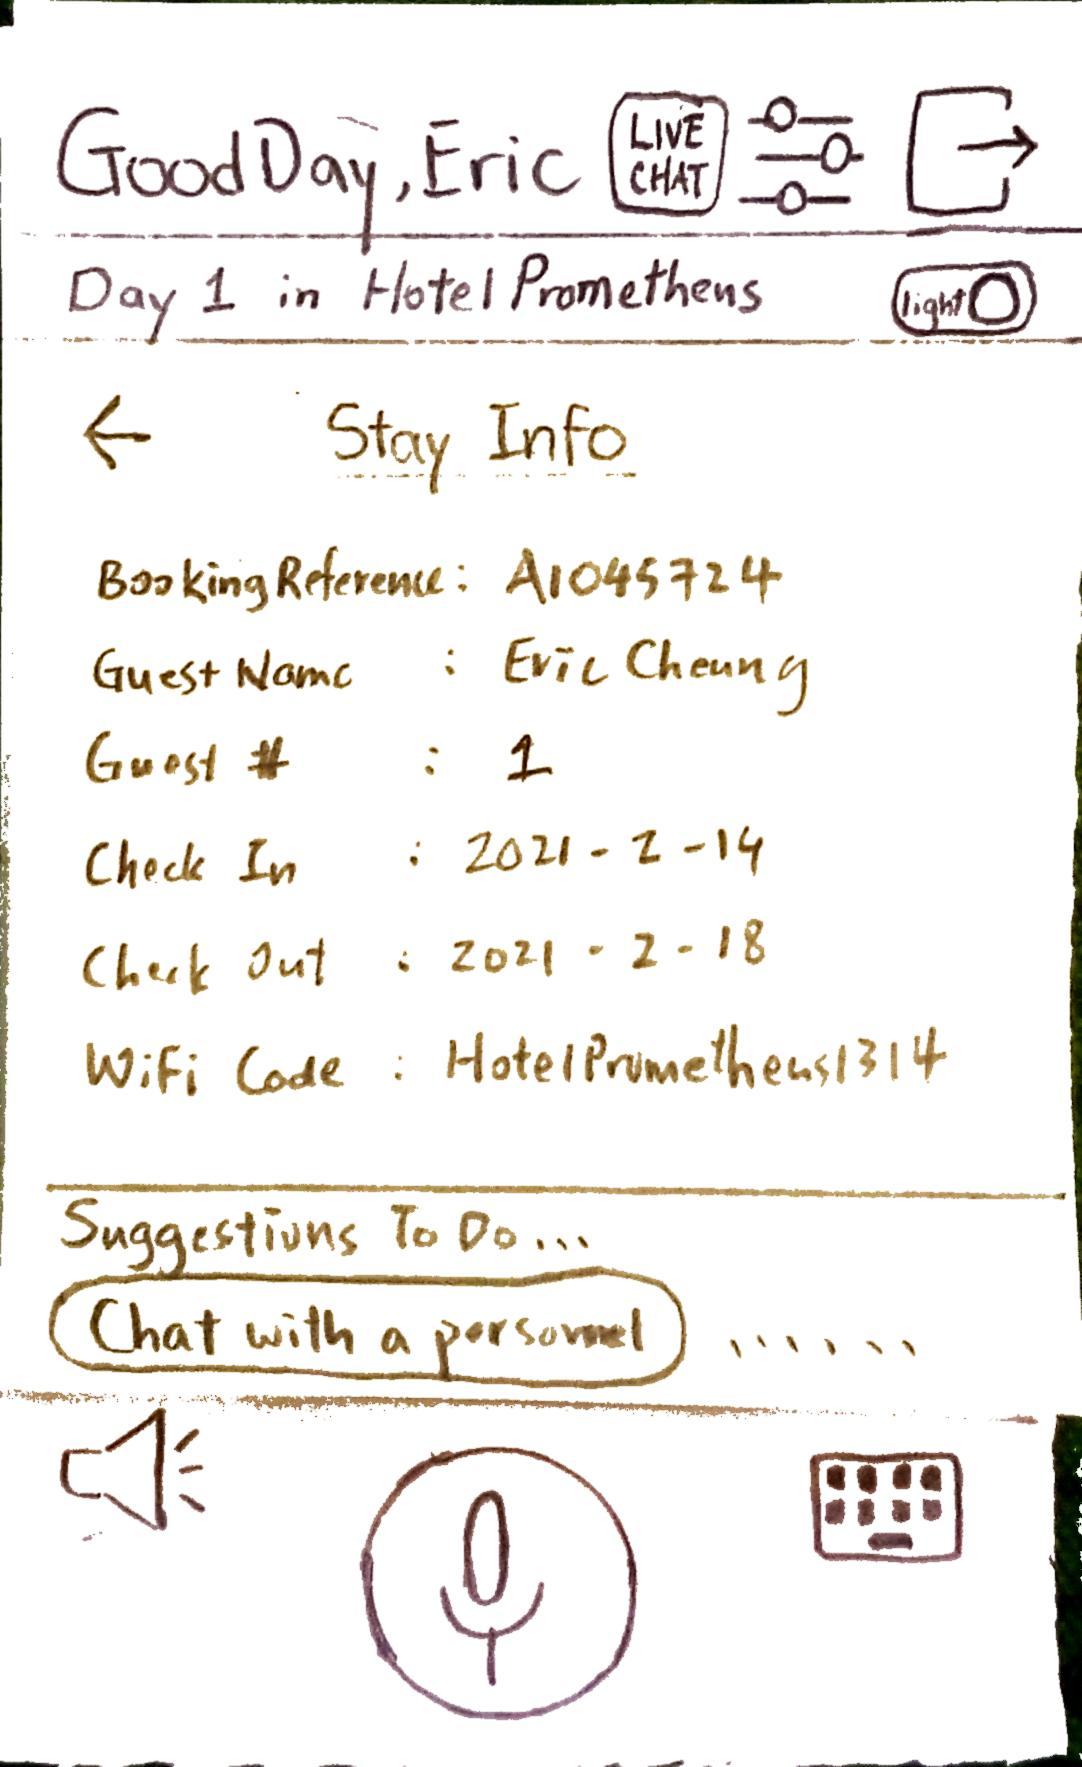 Good Day, Eric
LIVE
CHAT
Day 1 in Hotel Prometheus
light
Stay Info
Booking Reference : A1045724
Guest Name : Eric Cheung
Guest # : 1
Check In : 2021-2-14
Check Out : 2021-2-18
WiFi Code : HotelPrometheus1314
Suggestions To Do...
Chat with a personnel ......